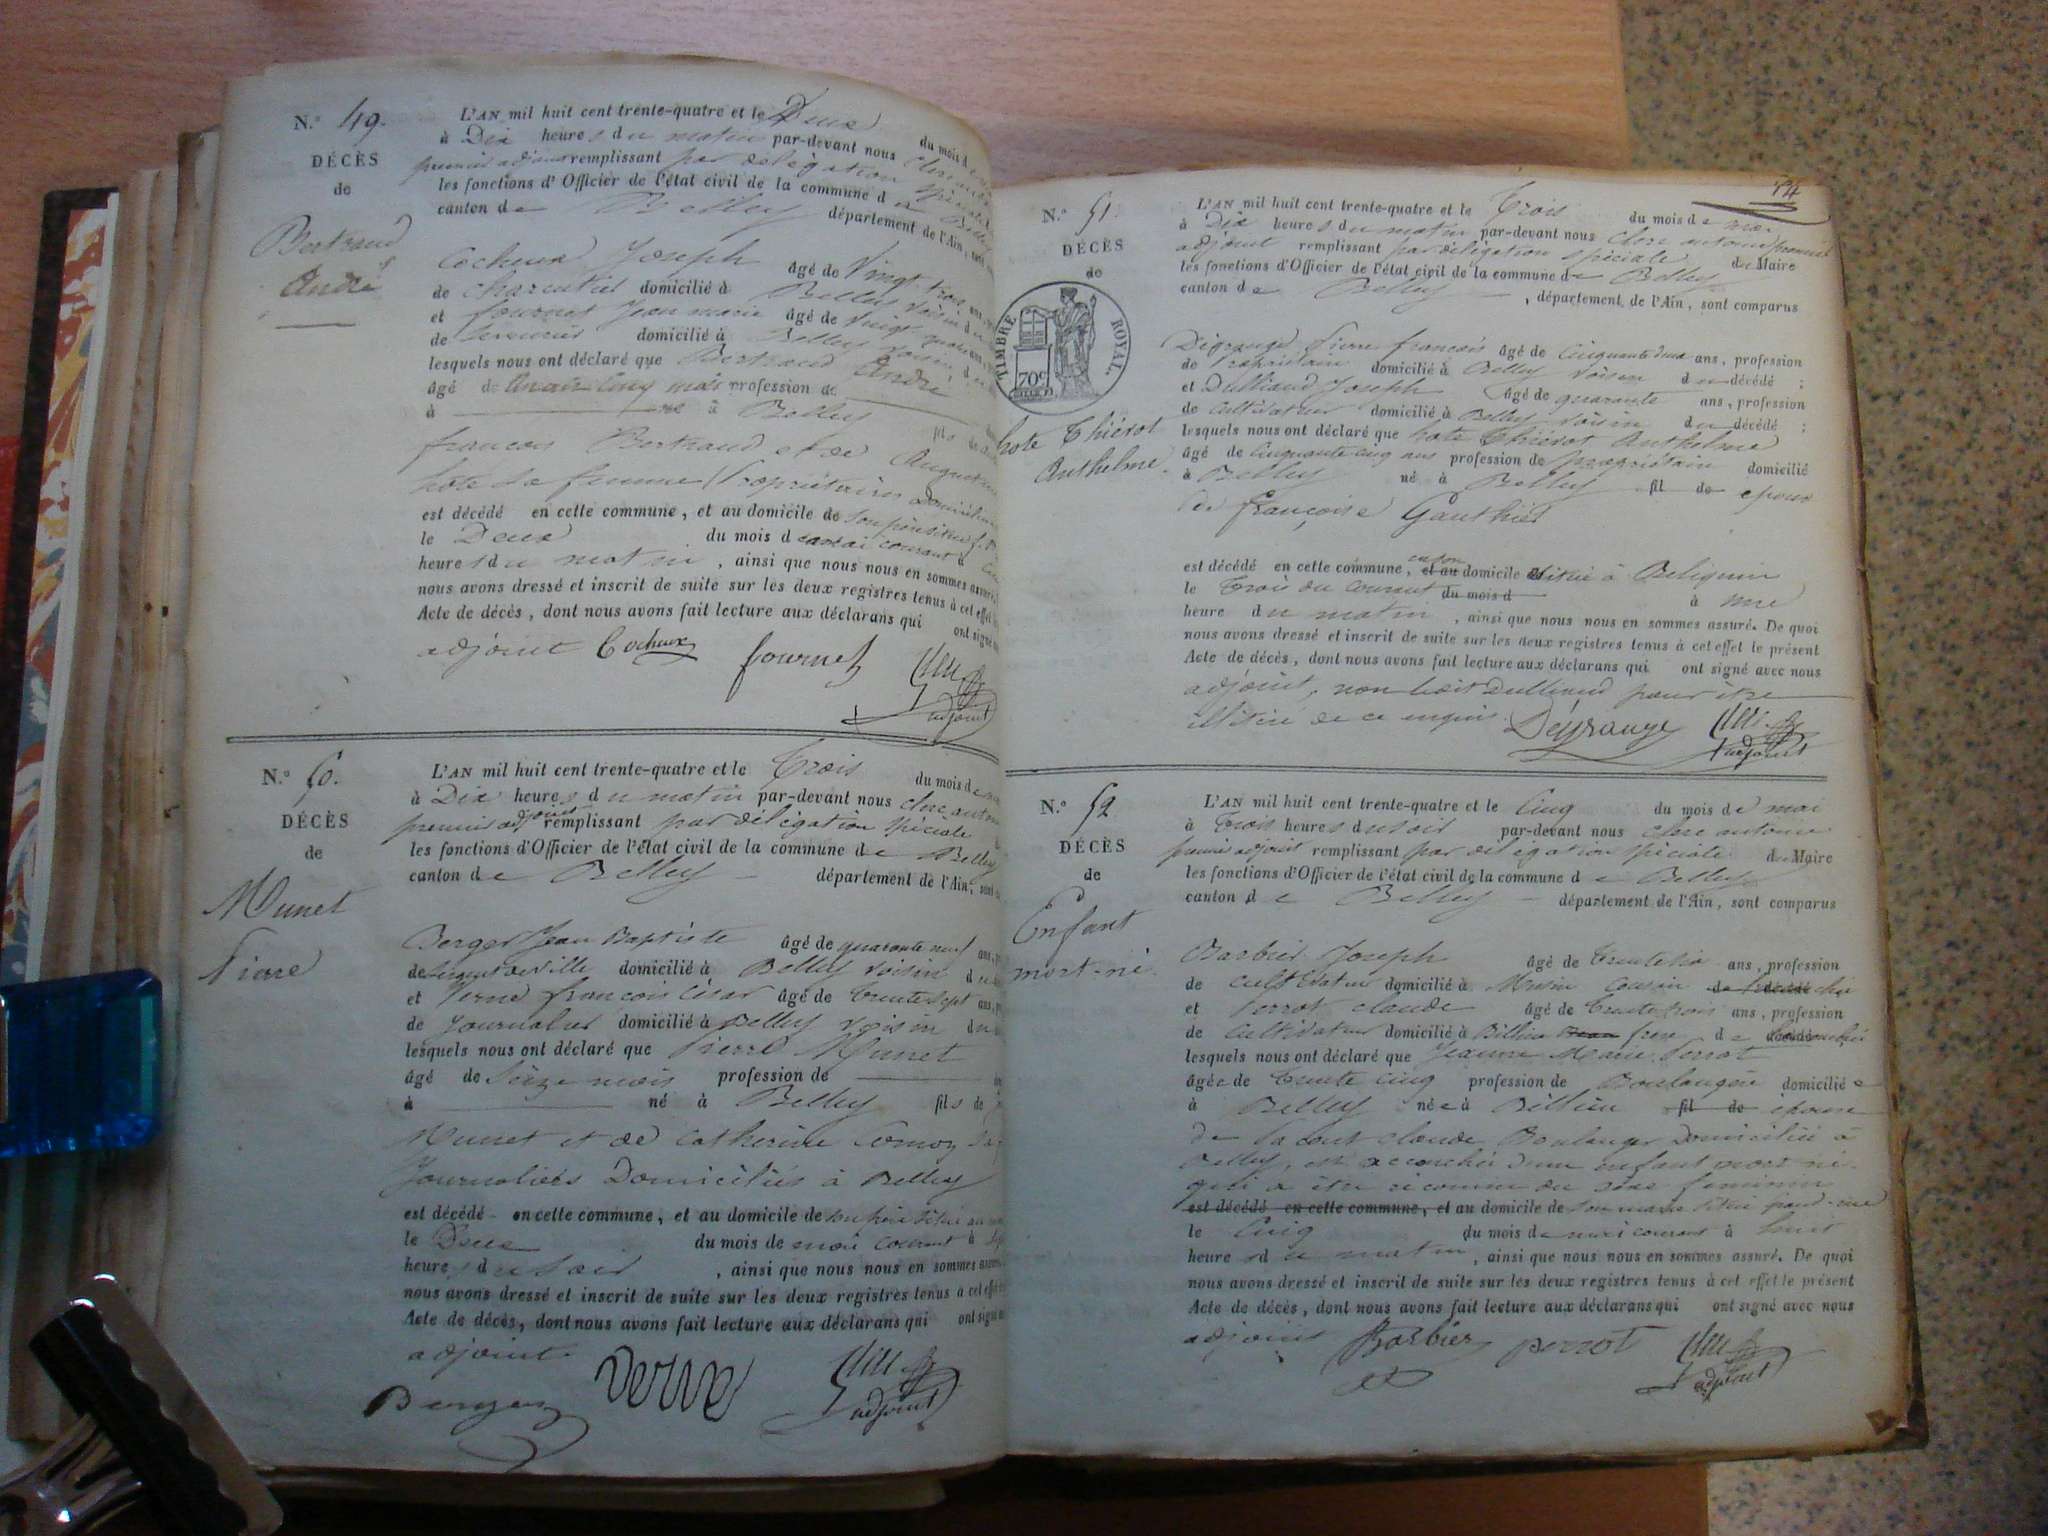 N.° 49.
DÉCÈS
de
Bertrand
André
L'AN mil huit cent trente-quatre et le Deux
du mois d
à Dix heures du matin par-devant nous
premier adjoint remplissant par délégation spéciale
les fonctions d'Officier de l'état civil de la commune de Belley
canton de Belley département de l'Ain,
Cocheux Joseph âgé de Vingt trois
de charcutier domicilié à Belley voisin du
et fournet Jean marie âgé de Vingt
de serrurier domicilié à Belley voisin du
lesquels nous ont déclaré que Bertrand André
âgé de profession de
à né à Belley fils de
françois Bertrand et de Augustine
hote sa femme Propriétaires Domiciliés
est décédé en cette commune, et au domicile de son père situé
le Deux du mois de mai courant à
heures du matin, ainsi que nous nous en sommes assuré.
nous avons dressé et inscrit de suite sur les deux registres tenus à cet effet
Acte de décès, dont nous avons fait lecture aux déclarans qui ont signé
adjoint Cocheux fournet
adjoint
N.° 50.
DÉCÈS
de
Munet
Pierre
L'AN mil huit cent trente-quatre et le Trois du mois de
à Dix heures du matin par-devant nous clerc antoine
premier adjoint remplissant par délégation spéciale
les fonctions d'Officier de l'état civil de la commune de Belley
canton de Belley département de l'Ain, sont
Berger Jean Baptiste âgé de quarante neuf ans,
de sergent de ville domicilié à Belley voisin du
et Verne françois César âgé de trente sept ans,
de Journalier domicilié à Belley voisin du
lesquels nous ont déclaré que Pierre Munet
âgé de seize mois profession de
à né à Belley fils de
Munet et de Catherine
Journaliers Domiciliés à Belley
est décédé en cette commune, et au domicile de son père situé
le Deux du mois de mai courant à
heures du soir, ainsi que nous nous en sommes assuré.
nous avons dressé et inscrit de suite sur les deux registres tenus à cet effet
Acte de décès, dont nous avons fait lecture aux déclarans qui ont signé
adjoint.
Berger Verne
adjoint
54
N.° 51.
DÉCÈS
de
TIMBRE ROYAL.
70c
hote Thiérot
Anthelme.
L'AN mil huit cent trente-quatre et le Trois du mois de mai
à Dix heures du matin par-devant nous clerc antoine premier
adjoint remplissant par délégation spéciale du Maire
les fonctions d'Officier de l'état civil de la commune de Belley
canton de Belley, département de l'Ain, sont comparus
Dégrange Pierre françois âgé de Cinquante deux ans, profession
de Propriétaire domicilié à Belley voisin du décédé ;
et Dulliand Joseph âgé de quarante ans, profession
de Cultivateur domicilié à Belley voisin du décédé ;
lesquels nous ont déclaré que hote Thiérot Anthelme
âgé de Cinquante cinq ans profession de propriétaire domicilié
à Belley né à Belley fil de époux
de françoise Gauthier
est décédé en cette commune, et au en son domicile situé à
le Trois du courant du mois d à une
heure du matin, ainsi que nous nous en sommes assuré. De quoi
nous avons dressé et inscrit de suite sur les deux registres tenus à cet effet le présent
Acte de décès, dont nous avons fait lecture aux déclarans qui ont signé avec nous
adjoint, non ledit Dulliand pour être
illitéré de ce enquis Dégrange
adjoint
N.° 52
DÉCÈS
de
Enfant
mort-né.
L'AN mil huit cent trente-quatre et le Cinq du mois de mai
à Trois heures du soir par-devant nous clerc antoine
premier adjoint remplissant par délégation spéciale du Maire
les fonctions d'Officier de l'état civil de la commune de Belley
canton de Belley département de l'Ain, sont comparus
Barbier Joseph âgé de trente six ans, profession
de Cultivateur domicilié à cousin
et Perrot claude âgé de Trente trois ans, profession
de Cultivateur domicilié à Billieu frere de
lesquels nous ont déclaré que Jeanne Marie Perrot
âgée de trente cinq profession de Boulangère domiciliée
à Belley née à Billieu fil de épouse
de Claude Boulanger Domicilié à
Belley, est accouchée d'un enfant mort né
qui a été reconnu du sexe feminin
est décédé en cette commune, et au domicile de son mari situé grand-rue
le Cinq du mois de mai courant à huit
heures du matin, ainsi que nous nous en sommes assuré. De quoi
nous avons dressé et inscrit de suite sur les deux registres tenus à cet effet le présent
Acte de décès, dont nous avons fait lecture aux déclarans qui ont signé avec nous
adjoint Barbier perrot
adjoint